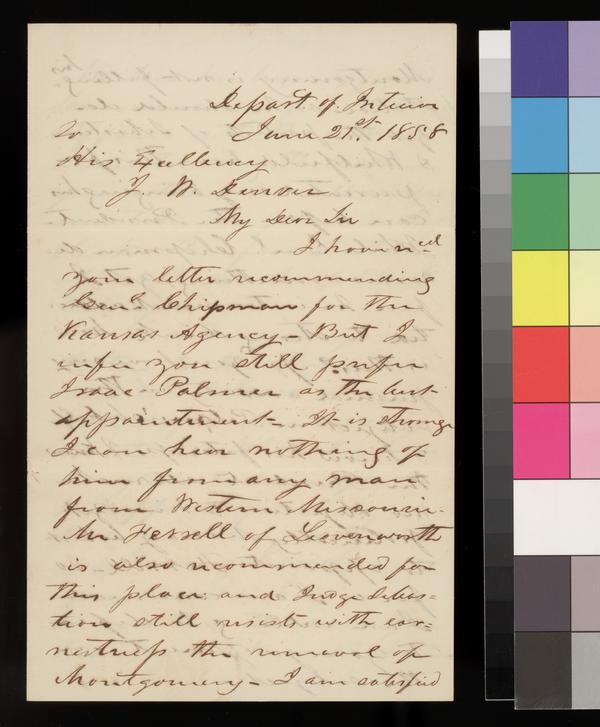 Depart. of Interior
To June 21st. 1858
His Excellency
J. W. Denver
My Dear Sir
I have recd
your letter recommending
Genl. Chipman for the
Kansas Agency - But I
infer you still prefer
Isaac Palmer as the best
appointment - It is strange
I can hear nothing of
him from any man
from Western Missouri.
Mr Ferrell of Leavenworth
is also recommended for
this place and Judge Sebas=
tian still resists with ear=
nestness the removal of
Montgomery - I am satisfied